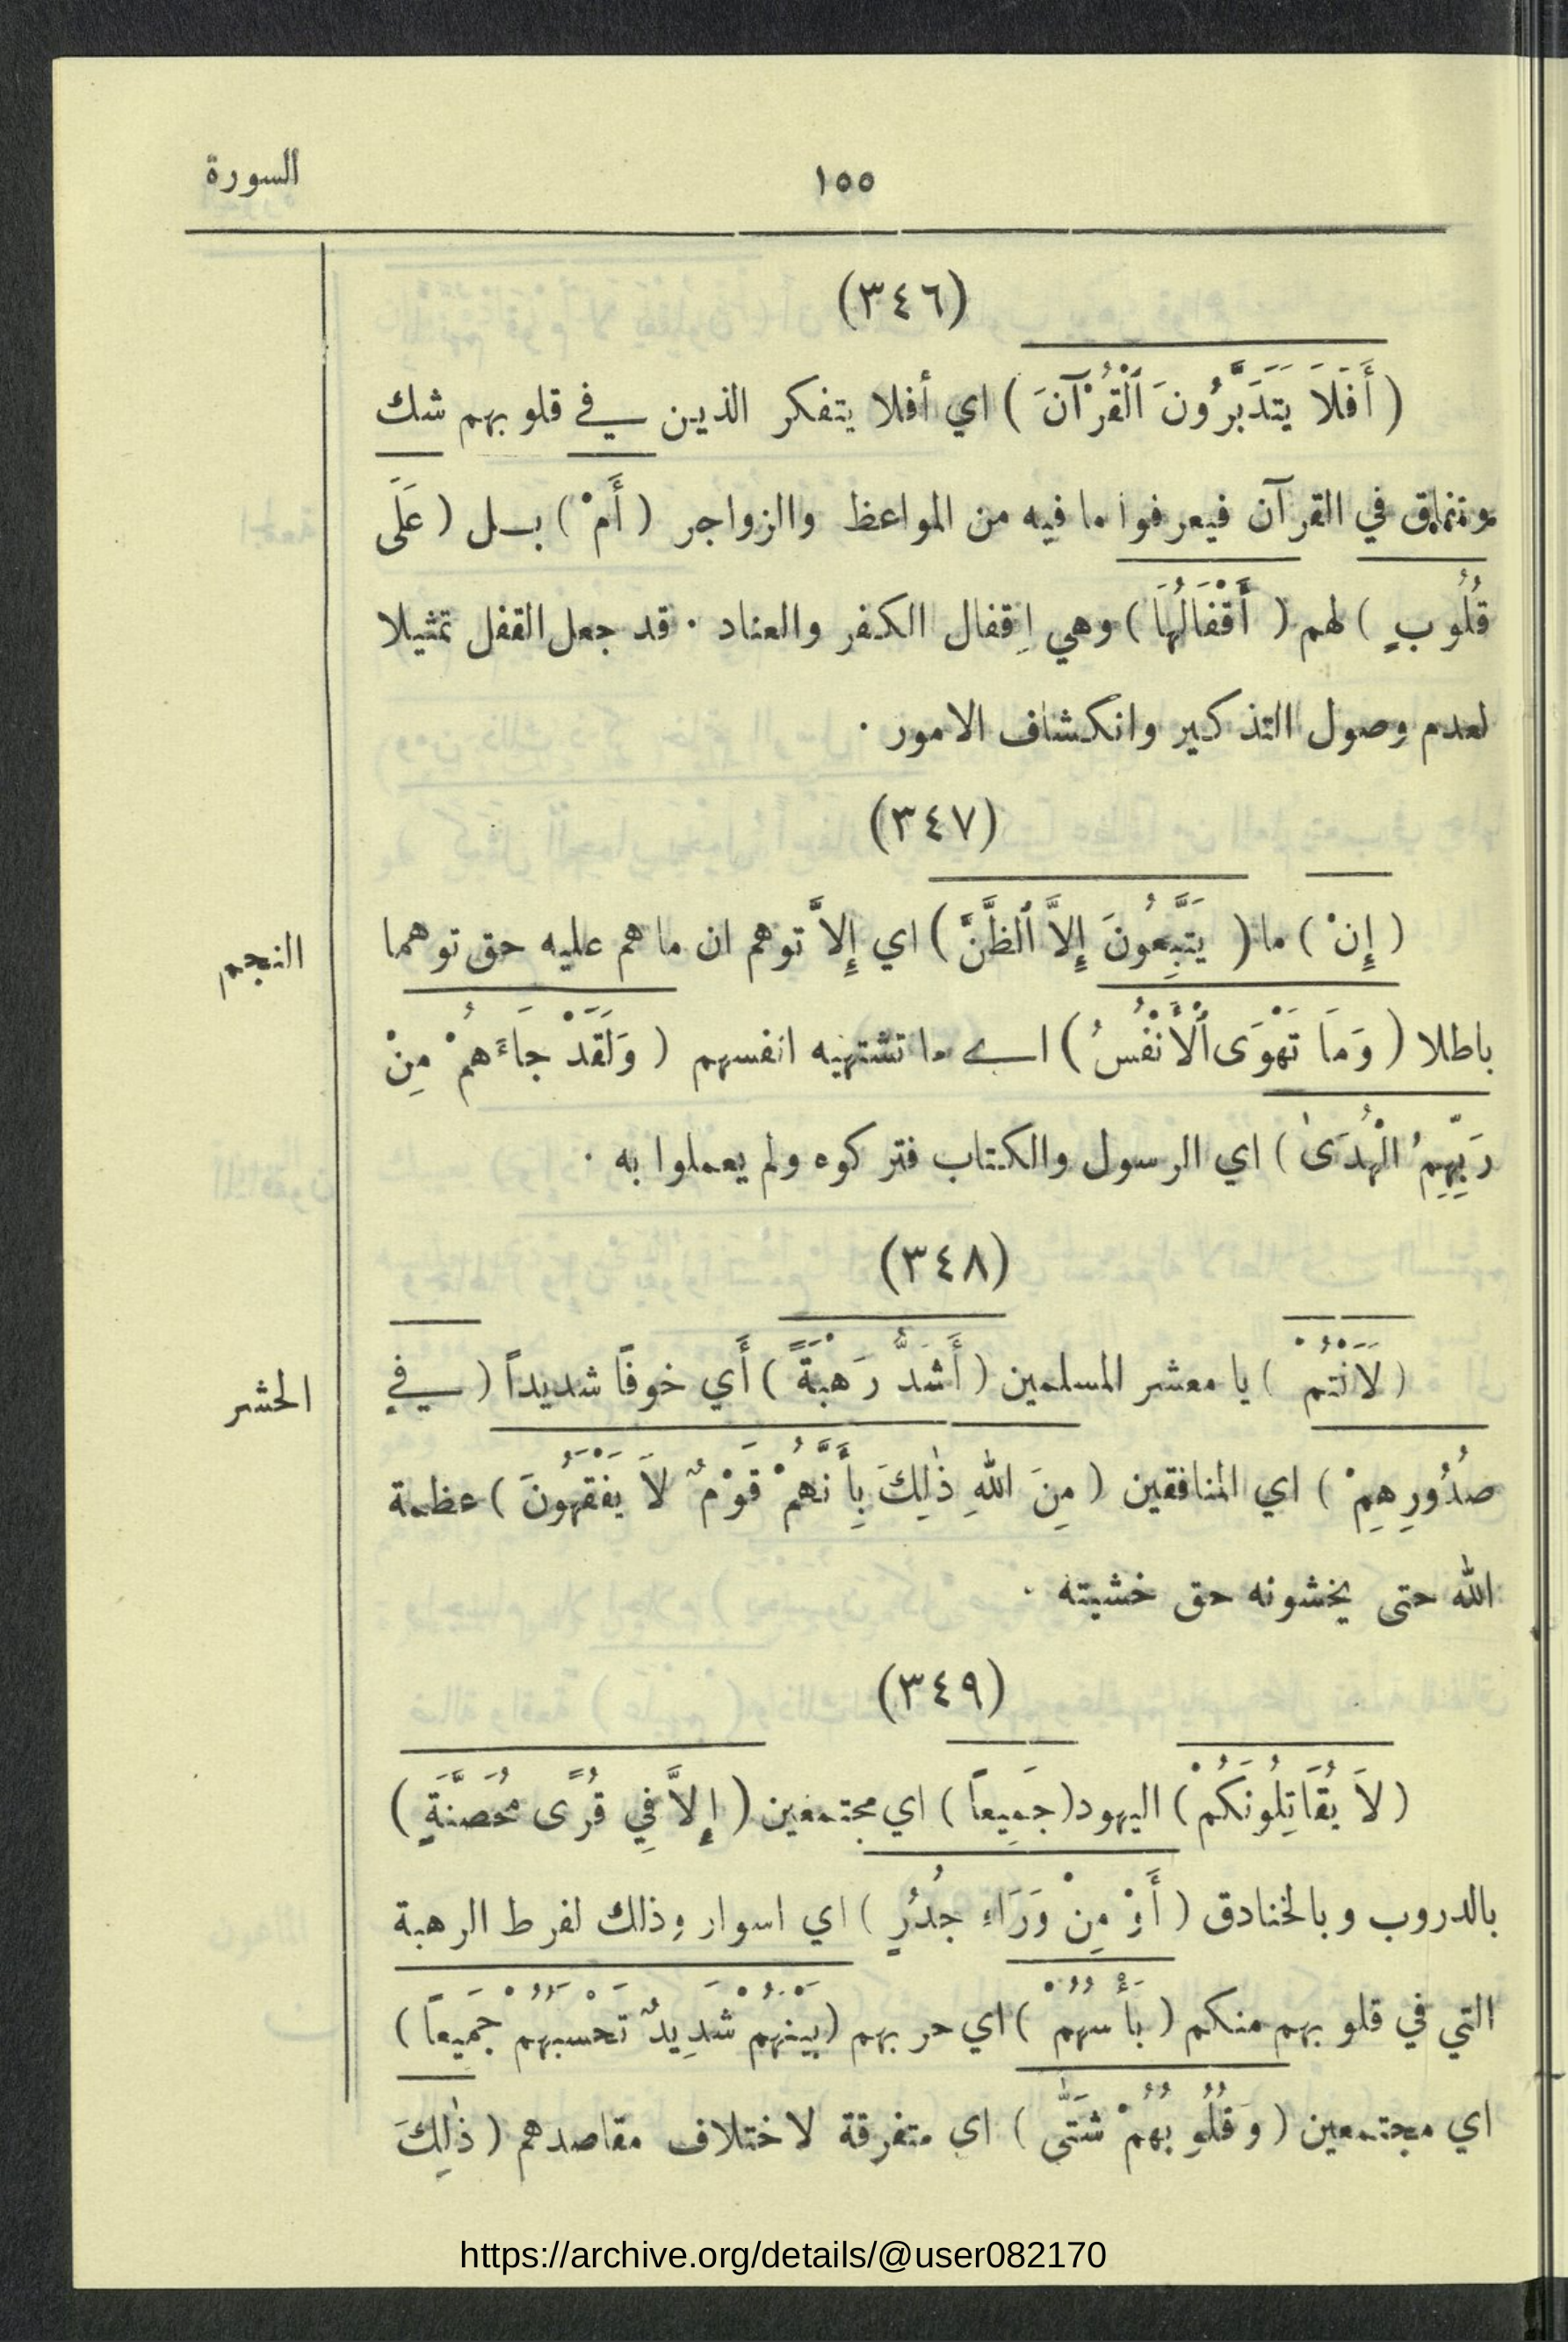 ١٥٥
السورة
(٣٤٦)
( أَفَلَا يَتَدَبَّرُونَ ٱلْقُرْآنَ ) اي أفلا يتفكر الذين في قلوبهم شك
في القرآن فيعرفوا ما فيه من المواعظ والزواجر ( أَمْ ) بل ( عَلَى
قُلُوبٍ ) لهم ( أَقْفَالُهَا ) وهي إِقفال الكفر والعناد . قد جعل القفل تمثيلا
لعدم وصول التذكير وانكشاف الامور .
(٣٤٧)
( إِنْ ) ما ( يَتَّبِعُونَ إِلاَّ ٱلظَّنَّ ) اي إِلاَّ توهم ان ما هم عليه حق توهما
النجم
باطلا ( وَمَا تَهْوَى ٱلْأَنْفُسُ ) اي ما تشتهيه انفسهم ( وَلَقَدْ جَاءَهُمْ مِنْ
رَبِّهِمُ الْهُدَىٰ ) اي الرسول والكتاب فتركوه ولم يعملوا به .
(٣٤٨)
( لَاَنْتُمْ ) يا معشر المسلمين ( أَشَدُّ رَهْبَةً ) أَي خوفًا شديداً ( في
الحشر
صُدُورِهِمْ ) اي المنافقين ( مِنَ اللهِ ذٰلِكَ بِأَنَّهُمْ قَوْمٌ لَا يَفْقَهُونَ ) عظمة
الله حتى يخشونه حق خشيته .
(٣٤٩)
( لَا يُقَاتِلُونَكُمْ ) اليهود ( جَمِيعاً ) اي مجتمعين ( إِلاَّ فِي قُرًى مُحَصَّنَةٍ )
بالدروب وبالخنادق ( أَوْ مِنْ وَرَاءِ جُدُرٍ ) اي اسوار وذلك لفرط الرهبة
التي في قلوبهم منكم ( بَأْسُهُمْ ) اي حربهم ( بَيْنَهُمْ شَدِيدٌ تَحْسَبُهُمْ جَمِيعاً )
اي مجتمعين ( وَقُلُوبُهُمْ شَتَّى ) اي متفرقة لاختلاف مقاصدهم ( ذٰلِكَ
https://archive.org/details/@user082170